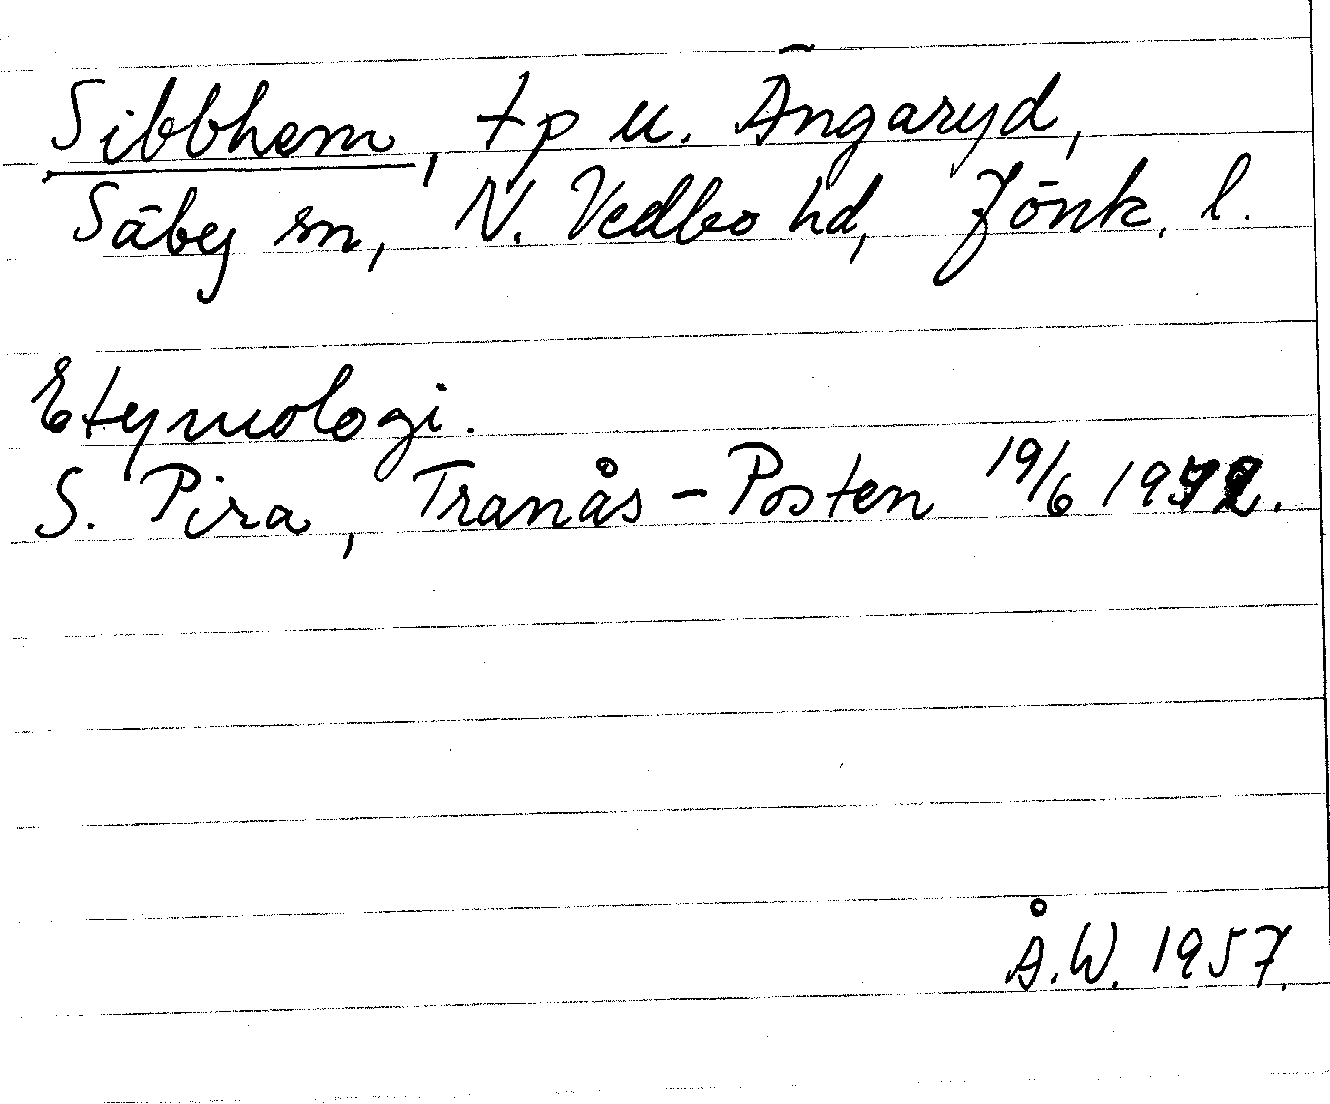 Sibbhem, tp u. Ängaryd,
Säby sn, N. Vedbo hd, Jönk. l.
Etymologi.
S. Pira, Tranås-Posten 19/6
Å.W. 1957.